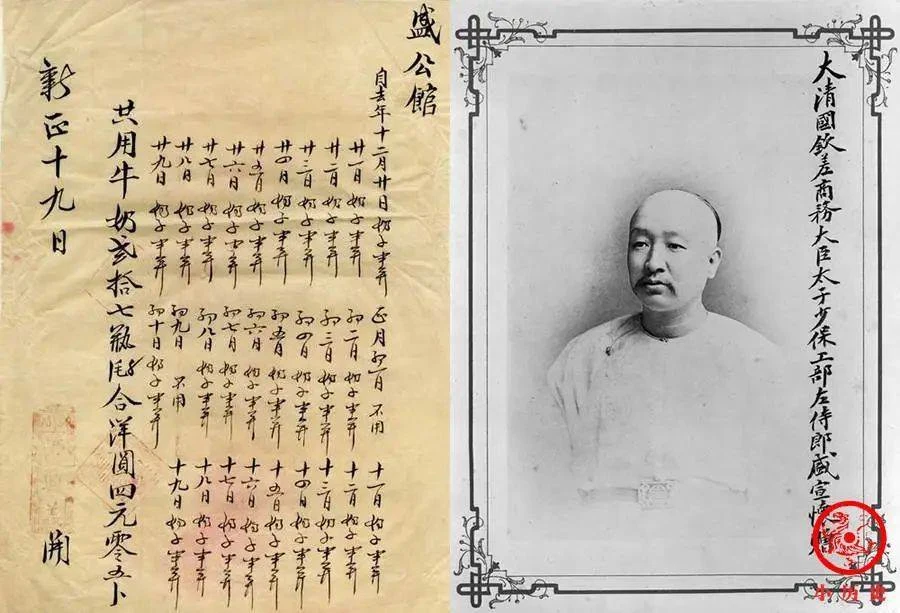 盛公館
自去年十二月廿日奶子半斤
廿一日奶子半斤
廿二日奶子半斤
廿三日奶子半斤
廿四日奶子半斤
廿五日奶子半斤
廿六日奶子半斤
廿七日奶子半斤
廿八日奶子半斤
廿九日奶子半斤
正月初一日不用
初二日奶子半斤
初三日奶子半斤
初四日奶子半斤
初五日奶子半斤
初六日奶子半斤
初七日奶子半斤
初八日奶子半斤
初九日不用
初十日奶子半斤
十一日奶子半斤
十二日奶子半斤
十三日奶子半斤
十四日奶子半斤
十五日奶子半斤
十六日奶子半斤
十七日奶子半斤
十八日奶子半斤
十九日奶子半斤
共用牛奶弍拾七瓶合洋圓四元零五卜
新正十九日 開
大清國欽差商務大臣太子少保工部左侍郎盛宣懷